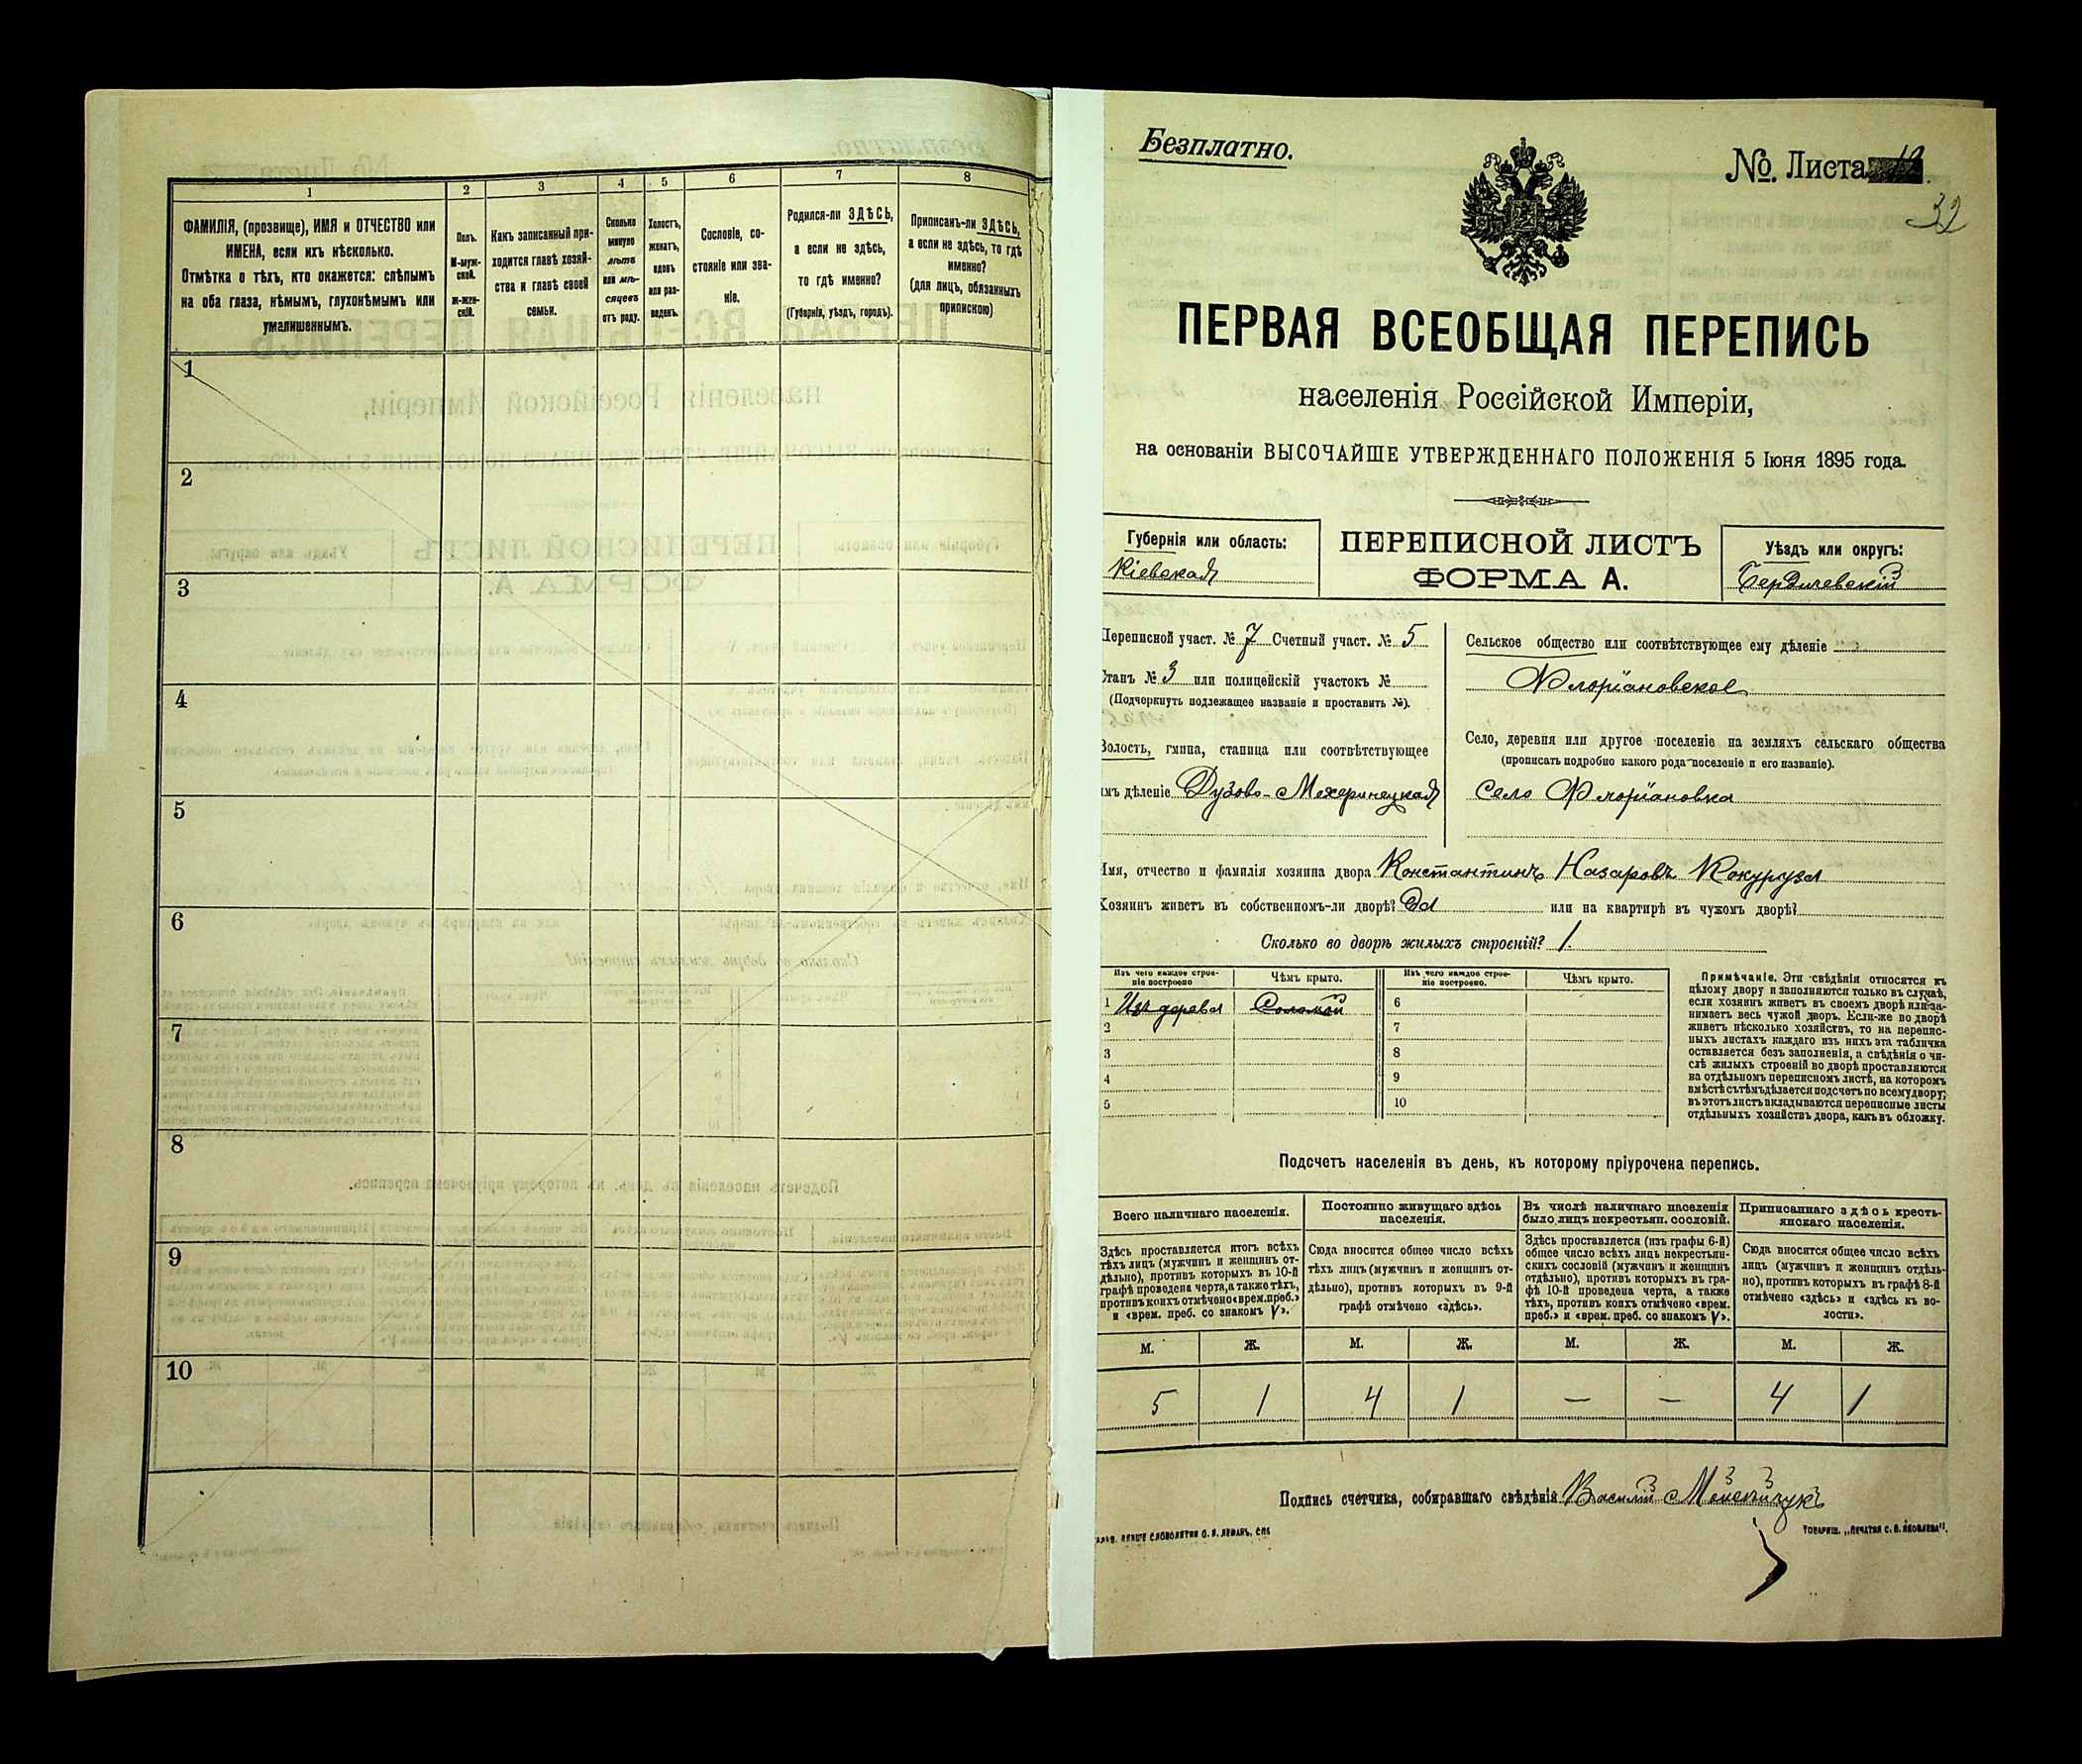 1
2
3
4
5
6
7
8
ФАМИЛІЯ, (прозвище), ИМЯ и ОТЧЕСТВО или
ИМЕНА, если ихъ нѣсколько.
Отмѣтка о тѣхъ, кто окажется: слѣпымъ
на оба глаза, нѣмымъ, глухонѣмымъ или
умалишеннымъ.
Полъ.
М-муж-
ской.
Ж-жен-
скій.
Какъ записанный при-
ходится главѣ хозяй-
ства и главѣ своей
семьи.
Сколько
минуло
лѣтъ
или мѣ-
сяцевъ
отъ роду.
Холостъ,
женатъ,
вдовъ
или раз-
веденъ.
Сословіе, со-
стояніе или зва-
ніе.
Родился-ли ЗДѢСЬ,
а если не здѣсь,
то гдѣ именно?
(Губернія, уѣздъ, городъ).
Приписанъ-ли ЗДѢСЬ,
а если не здѣсь, то гдѣ
именно?
(для лицъ, обязанныхъ
припискою)
1
2
3
4
5
6
7
8
9
10
Безплатно.
№. Листа 12.
32
ПЕРВАЯ ВСЕОБЩАЯ ПЕРЕПИСЬ
населенія Россійской Имперіи,
на основаніи ВЫСОЧАЙШЕ УТВЕРЖДЕННАГО ПОЛОЖЕНІЯ 5 Іюня 1895 года.
Губернія или область:
Кіевская
ПЕРЕПИСНОЙ ЛИСТЪ
ФОРМА А.
Уѣздъ или округъ:
Бердичевскій
Переписной участ. № 7 Счетный участ. № 5
Станъ № 3 или полицейскій участокъ №
(Подчеркнуть подлежащее названіе и проставить №).
Волость, гмина, станица или соотвѣтствующее
имъ дѣленіе Дузово-Махеринецкая
Сельское общество или соотвѣтствующее ему дѣленіе
Флоріановское
Село, деревня или другое поселеніе на земляхъ сельскаго общества
(прописать подробно какого рода поселеніе и его названіе).
Село Флоріановка
Имя, отчество и фамилія хозяина двора Константинъ Назаровъ Кокуруза
Хозяинъ живетъ въ собственномъ-ли дворѣ? Да или на квартирѣ въ чужомъ дворѣ?
Сколько во дворѣ жилыхъ строеній? 1.
Изъ чего каждое строе-
ніе построено
Чѣмъ крыто.
Изъ чего каждое строе-
ніе построено.
Чѣмъ крыто.
1 Изъ дерева Соломой 6
2 7
3 8
4 9
5 10
Примѣчаніе. Эти свѣдѣнія относятся къ
цѣлому двору и заполняются только въ случаѣ,
если хозяинъ живетъ въ своемъ дворѣ или за-
нимаетъ весь чужой дворъ. Если-же во дворѣ
живетъ нѣсколько хозяйствъ, то на перепис-
ныхъ листахъ каждаго изъ нихъ эта табличка
оставляется безъ заполненія, а свѣдѣнія о чи-
слѣ жилыхъ строеній во дворѣ проставляются
на отдѣльномъ переписномъ листѣ, на которомъ
вмѣстѣ съ тѣмъ дѣлается подсчетъ по всему двору;
въ этотъ листъ вкладываются переписные листы
отдѣльныхъ хозяйствъ двора, какъ въ обложку.
Подсчетъ населенія въ день, къ которому пріурочена перепись.
Всего наличнаго населенія.
Постоянно живущаго здѣсь
населенія.
Въ числѣ наличнаго населенія
было лицъ некрестьян. сословій.
Приписаннаго здѣсь кресть-
янскаго населенія.
Здѣсь проставляется итогъ всѣхъ
тѣхъ лицъ (мужчинъ и женщинъ от-
дѣльно), противъ которыхъ въ 10-й
графѣ проведена черта, а также тѣхъ,
противъ коихъ отмѣчено «врем. преб.»
и «врем. преб. со знакомъ V».
Сюда вносится общее число всѣхъ
тѣхъ лицъ (мужчинъ и женщинъ от-
дѣльно), противъ которыхъ въ 9-й
графѣ отмѣчено «здѣсь».
Здѣсь проставляется (изъ графы 6-й)
общее число всѣхъ лицъ некрестьян-
скихъ сословій (мужчинъ и женщинъ
отдѣльно), противъ которыхъ въ гра-
фѣ 10-й проведена черта, а также
тѣхъ, противъ коихъ отмѣчено «врем.
преб.» и «врем. преб. со знакомъ V».
Сюда вносится общее число всѣхъ
лицъ (мужчинъ и женщинъ отдѣль-
но), противъ которыхъ въ графѣ 8-й
отмѣчено «здѣсь» и «здѣсь къ во-
лости».
М. Ж. М. Ж. М. Ж. М. Ж.
5 1 4 1 — — 4 1
Подпись счетчика, собиравшаго свѣдѣнія Василій
СЛОВОЛИТНЯ О. И. ЛЕМАНЪ, СПБ
ТОВАРИЩ. „ПЕЧАТНЯ С. П. ЯКОВЛЕВА".